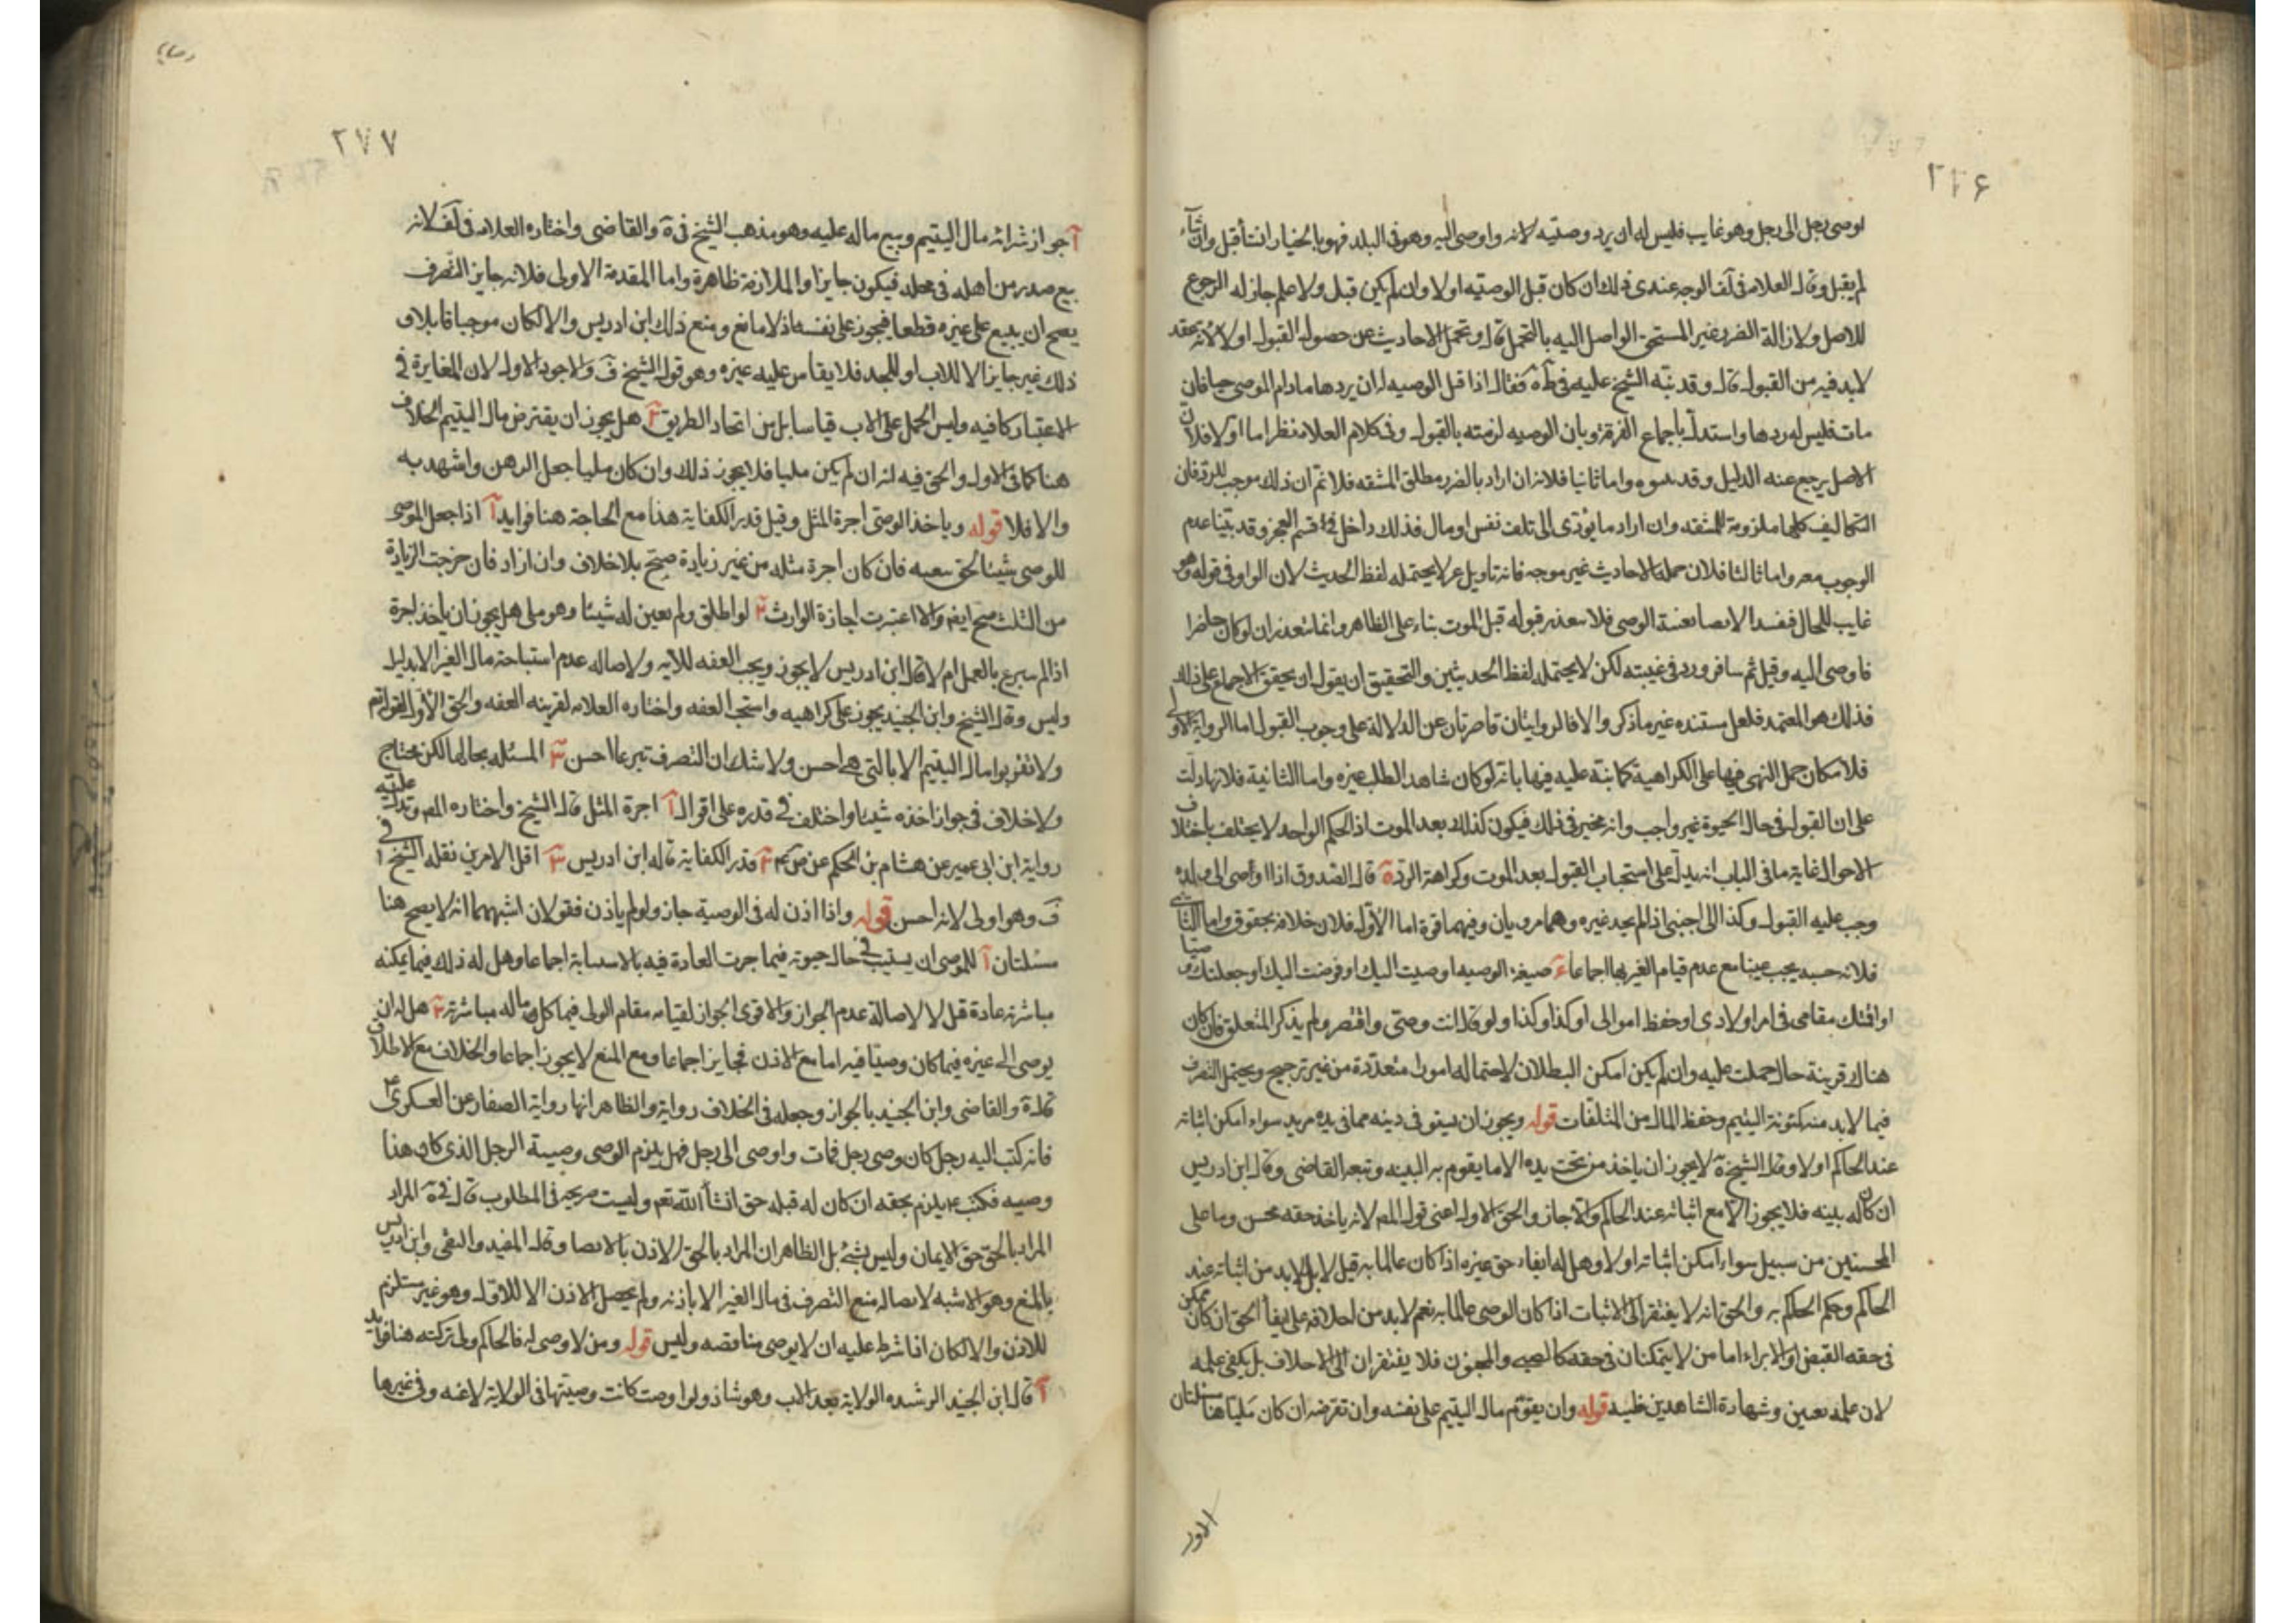 ٢٧۶
اوصى رجل الى رجل وهو غايب فليس له ان يرد وصيته لانه واوصى اليه وهو فى البلد فهو بالخيار ان شآء قبل وان شآء
لم يقبل وقال العلامه فى لف الوجه عندى ذلك ان كان قبل الوصيه اولا وان لم يكن قبل ولا علم جاز له الرجوع
للاصل ولازالة الضرر غير المستحق الواصل اليه بالتحمل قال وتحمل الاحاديث عن حصول القبول اولا لانه عقد
لابد فيه من القبول قال وقد نبّه الشيخ عليه فى ط وه فقال اذا قبل الوصيه له ان يردها مادام الموصى حيا فان
مات فليس له ردها واستدل باجماع الفرقة وبان الوصيه لزمته بالقبول وفى كلام العلامه نظر اما اولا فلان
الاصل يرجع عنه الدليل وقد واما ثانيا فلانه ان اراد بالضرر مطلق المشقه فلا نم ان ذلك موجب للرد فان
التكاليف كلها ملزومة للمشقه وان اراد ما يؤدى الى تلف نفس او مال فذلك داخل فى قسم العجز وقد بيّنا عدم
الوجوب معه واما ثالثا فلان حمله الاحاديث غير موجه فانه تاويل لا يحتمله لفظ الحديث لان الواو فى قوله وهو
غايب للحال فقيد الايصا بغيبة الوصى فلا يتعذر قبوله قبل الموت بناء على الظاهر وانما يتعذر ان لو كان حاضرا
فاوصى اليه وقبل ثم سافر ورد فى غيبته لكن لا يحتمله لفظ الحديثين والتحقيق ان يقول ان يحقق الاجماع على ذلك
فذلك هو المعتمد فلعل مستنده غير ماذكر والا فالروايتان قاصرتان عن الدلالة على وجوب القبول اما الرواية الاولى
فلامكان حمل النهى فيها على الكراهية كما نبّه عليه فيها بانه لو كان شاهدا لطلب غيره واما الثانية فلانها دلت
على ان القبول فى حال الحيوة غير واجب وانه مخير فى ذلك فيكون كذلك بعد الموت اذ الحكم الواحد لا يختلف باختلاف
الاحوال غاية ما فى الباب انه يدل على استحباب القبول بعد الموت وكراهة الرد ه قال الصدوق اذا اوصى الى ولده
وجب عليه القبول وكذا الى اجنبى اذا لم يجد غيره وهما مرويان وفيهما قوة اما الاول فلان خلافه بحقوق واما الثانى
فلانه حسبه يجب عينا مع عدم قيام الغير بها اجماعا صيغة الوصيه اوصيت اليك او فوضت اليك او جعلتك وصيا
او اقمتك مقامى فى امر اولادى او حفظ اموالى او كذا وكذا ولو قال انت وصيّى واقتصر ولم يذكر المتعلق فان كان
هناك قرينة حال حملت عليه وان لم يكن امكن البطلان لاحتماله امورا متعددة من غير ترجيح ويحتمل التصرف
فيما لابد منه كئونة اليتيم وحفظ المال من المتلفات قوله ويجوز ان يستوفى دينه مما فى يده مريد سواء امكن اثباته
عند الحاكم اولا وقال الشيخ فى ه لا يجوز ان ياخذ من تحت يده الا ما يقوم به البينه وتبعه القاضى وقال ابن ادريس
ان كان له بينه فلا يجوز الا مع اثباته عند الحاكم والا جاز والحق الاول اعنى قول المص لانه ياخذ حقه محسن وما على
المحسنين من سبيل سواء امكن اثباته اولا وهل له ايفاء حق غيره اذا كان عالما به قيل لا بل لابد من اثباته عند
الحاكم وحكم الحاكم به والحق انه لا يفتقر الى الاثبات اذا كان الوصى عالما به نعم لابد من احلافه على ايفأ الحق ان كان ممكن
فى حقه القبض او الابراء اما من لا يتمكنان فى حقه كالصبى والمجنون فلا يفتقران الى الاحلاف بل يكفى علمه
لان علمه تعيين وشهادة الشاهدين ظنيه قوله وان يقوّم مال اليتيم على نفسه وان تقترضه ان كان مليّا هنا مسئلتان
٢٧٧
آ جواز شرائه مال اليتيم وبيع ماله عليه وهو مذهب الشيخ فى ه والقاضى واختاره العلامه فى لف لانه
بيع صدر من اهله فى محله فيكون جايزا والملازمة ظاهرة واما المقدمة الاولى فلانه جايز التصرف
يصح ان يبيع على غيره قطعا فيجوز على نفسه اذ لا مانع ومنع ذلك ابن ادريس والا لكان موجبا قابلا و
ذلك غير جايز الا للاب او للجد فلا يقاس عليه غيره وهو قول الشيخ فى ف والاجود الاول لان المغايرة فى
الاعتبار كافيه وليس الحمل على الاب قياسا بل من اتحاد الطريق ٢ هل يجوز ان يقترض مال اليتيم الخلاف
هنا كما فى الاول والحق فيه انه ان لم يكن مليا فلا يجوز ذلك وان كان مليا جعل الرهن واشهد به
والا فلا قوله وياخذ الوصى اجرة المثل وقيل قدر الكفاية هذا مع الحاجة هنا فوايد آ اذا جعل الموصى
للوصى شيئا لحق سعيه فان كان اجرة مثله من غير زيادة صح بلا خلاف وان زاد فان خرجت الزيادة
من الثلث صح ايضا والا اعتبرت اجازة الوارث ٢ لو اطلق ولم يعين له شيئا وهو ملى هل يجوز ان ياخذ اجرة
اذا لم يتبرع بالعمل ام لا قال ابن ادريس لا يجوز ويجب العفه للايه ولاصاله عدم استباحة مال الغير الا بدليل
وليس وقال الشيخ وابن الجنيد يجوز على كراهيه واستحب العفه واختاره العلامه لقرينه العفه والحق الاول لقوله تعالى
ولا تقربوا مال اليتيم الا بالتى هى احسن ولا شك ان التصرف تبرعا احسن ٣ المسئله بحالها لكن محتاج
ولا خلاف فى جواز اخذه شيئا واختلف فى قدره على اقوال آ اجرة المثل قاله الشيخ واختاره المص وتدل عليه
رواية ابن ابى عمير عن هشام بن الحكم عن ص ٢ قدر الكفاية قاله ابن ادريس ٣ اقل الامرين نقله الشيخ فى
ف وهو اولى لانه احسن قوله واذا اذن له فى الوصية جاز ولو لم ياذن فقولان اشبههما انه لا يصح هنا
مسئلتان آ للموصى ان يستنيب فى حال حيوته فيما جرت العادة فيه بالاستنابة اجماعا وهل له ذلك فيما يمكنه
مباشرته عادة قيل لا لاصالة عدم الجواز والاقوى الجواز لقيامه مقام الولى فيما كل ماله مباشرته ٢ هل له ان
يوصى الى غيره فيما كان وصيّا فيه اما مع الاذن فجايز اجماعا ومع المنع لا يجوز اجماعا والخلاف مع الاطلاق
والقاضى وابن الجنيد بالجواز وجعله فى الخلاف رواية والظاهر انها رواية الصفار عن العسكرى ع
فانه كتب اليه رجل كان وصى رجل فمات واوصى الى رجل فهل يلزم الوصى وصيبة الرجل الذى كان هذا
وصيه فكتب ع يلزم بحقه ان كان له قبله حق انشأ الله تعم وليست صريحة فى المطلوب قال فى ه المراد
المراد بالحق حق الايمان وليس بشئ بل الظاهر ان المراد بالحق الاذن بالايصا وقال المفيد والتقى وابن ادريس
بالمنع وهو الاشبه لاصاله منع التصرف فى مال الغير الا باذنه ولم يحصل الاذن الا للاول وهو غير مستلزم
للاذن والا لكان اذا شرط عليه ان لا يوصى مناقضه وليس قوله ومن لا وصى له فالحاكم ولى تركته هنا فوايد
آ قال ابن الجنيد الرشده الولاية بعد الاب وهو شاذ ولو اوصت كانت وصيتها فى الولاية لاغيه وفى غيرها